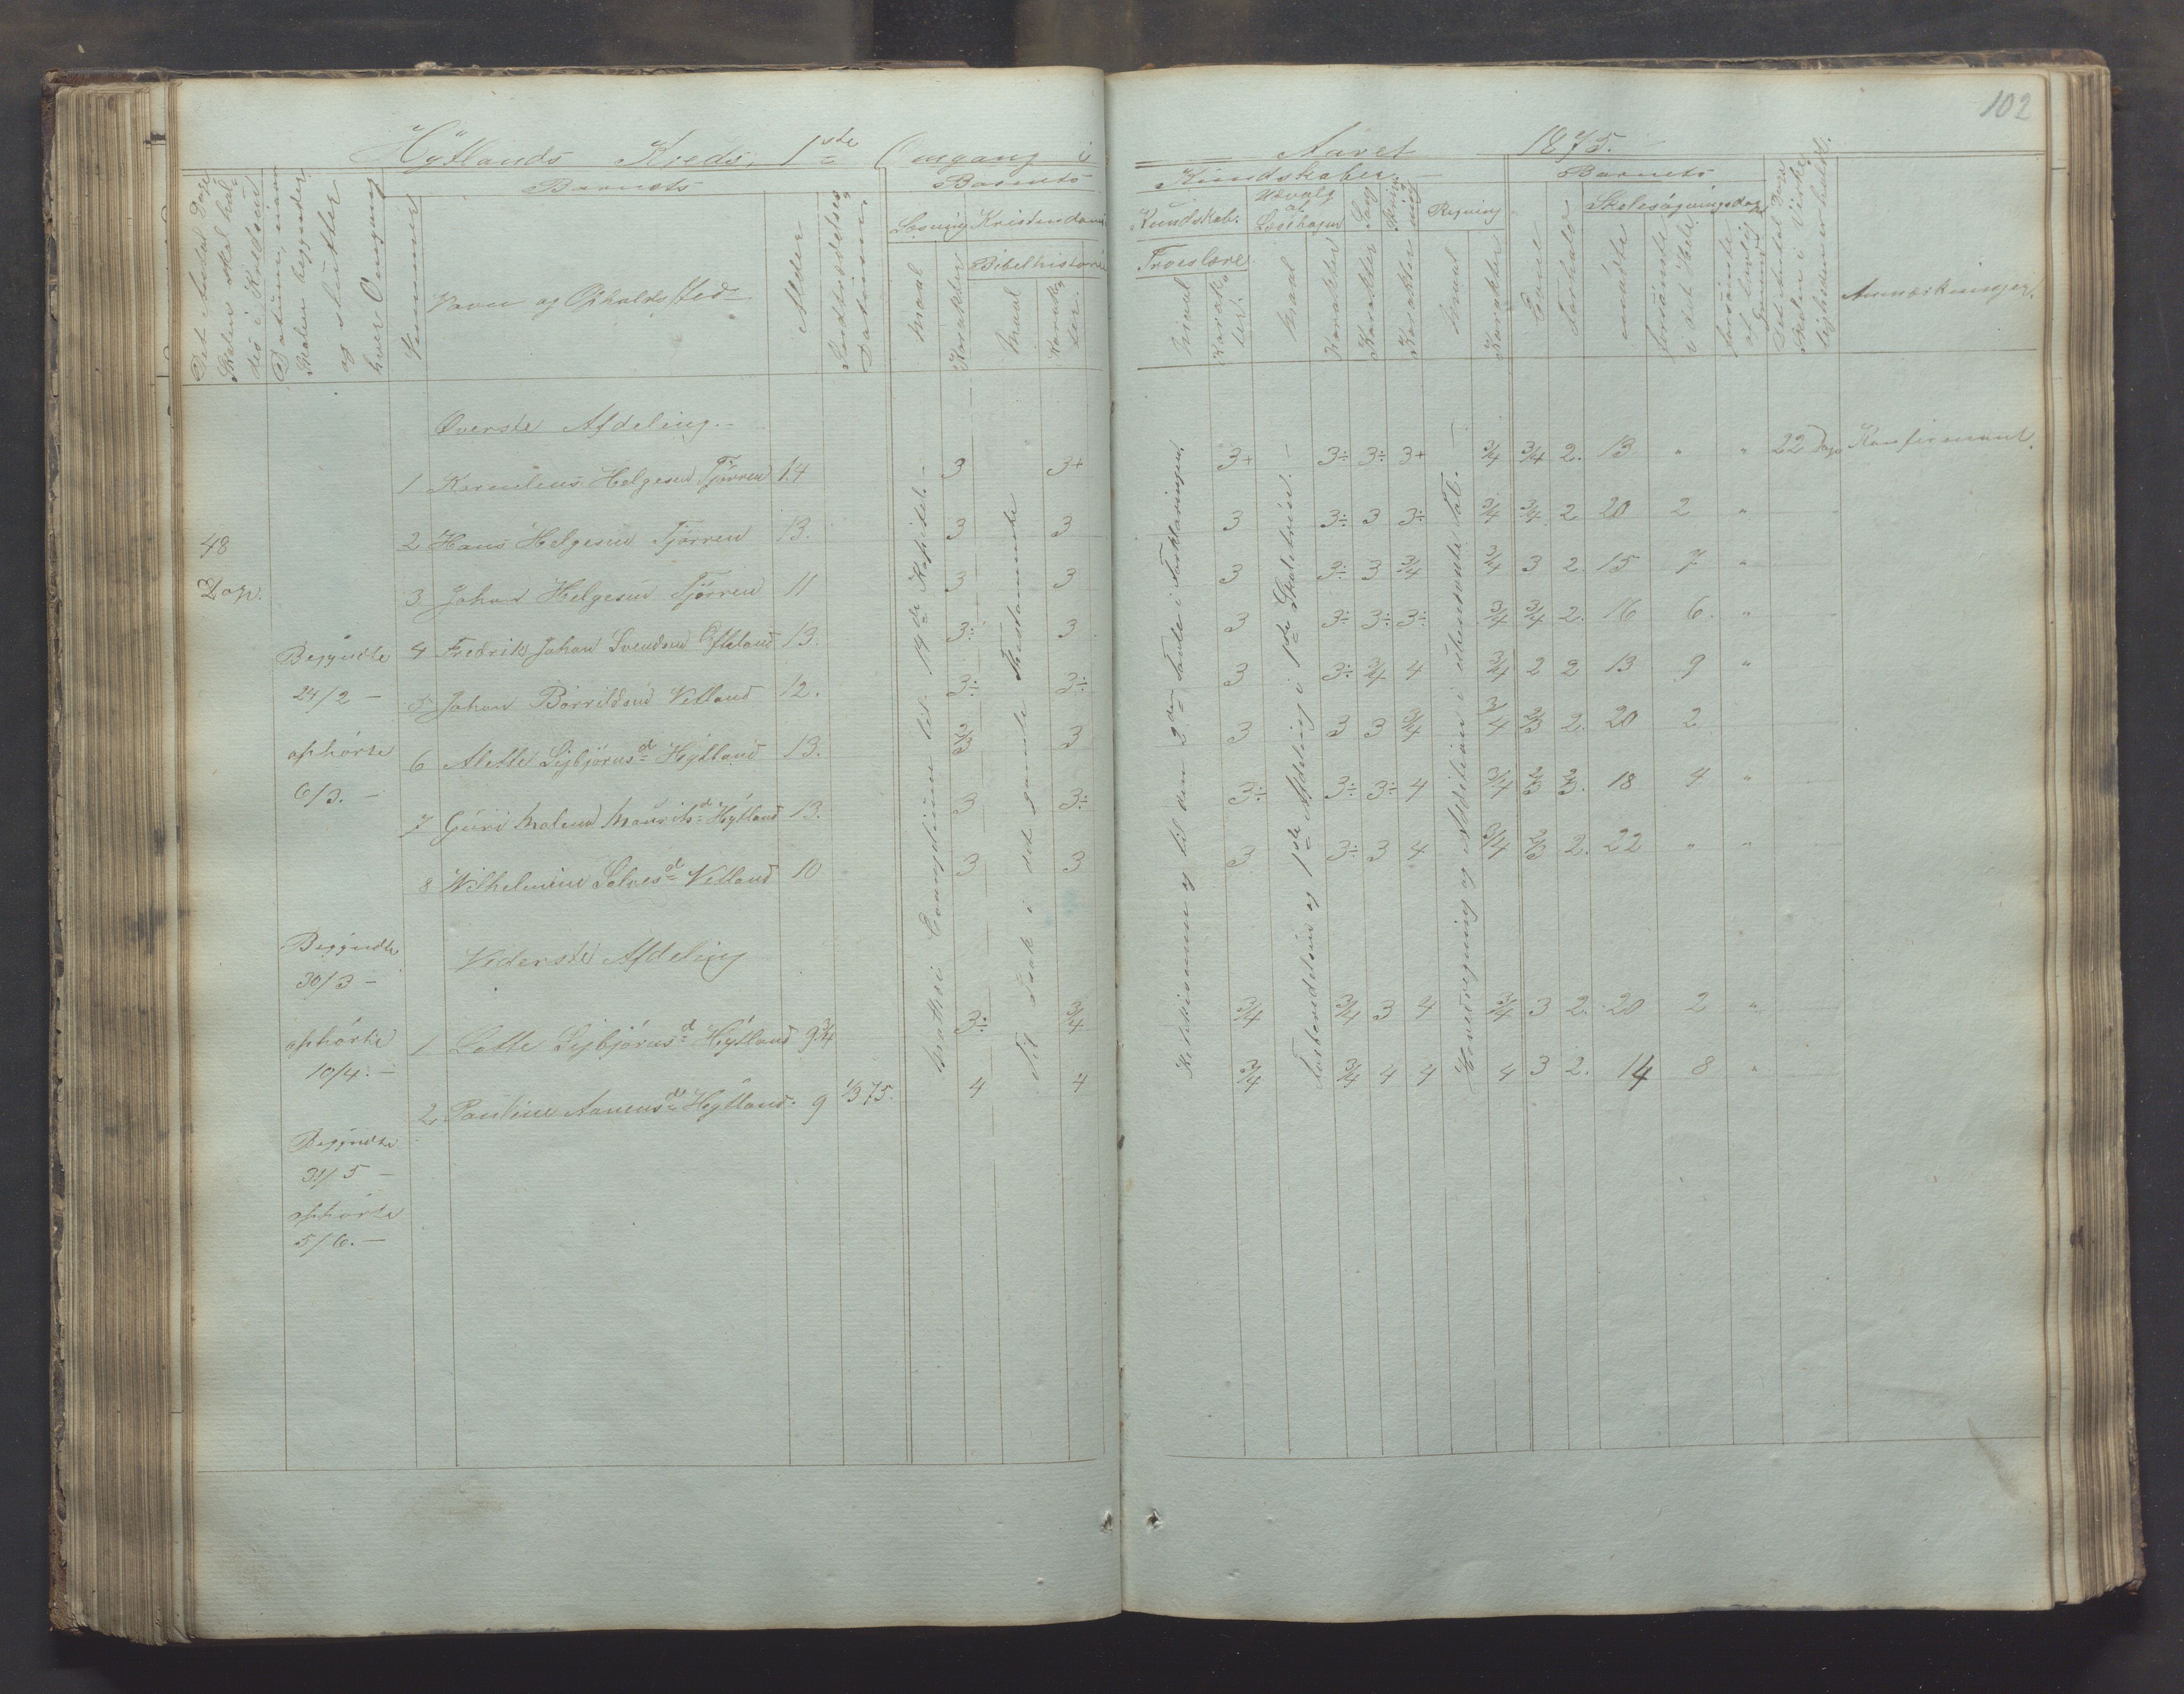 102
Hÿtlands Kreds, 1ste Omgang i Aaret 1875.
Det Antal Dage Skolen skal holdes i Kredsen
Datum, naar Skolen begynder og slutter hver Omgang
Barnets
Nummer
Navn og Opholdssted
Alder
Indtrædelses Datum.
Barnets Kundskaber.
Læsning
Maal
Karakter
Kristendoms Kundskab.
Bibelhistorie
Maal
Karakter.
Troeslære
Maal
Karakter.
Udvalg af Læsebogen
Maal
Karakter
Sang
Karakter
Skrivning
Karakter
Regning
Maal
Karakter
Barnets
Evne
Forhold
Skolesøgningsdage
mødte
forsømte i det Hele
forsømte af lovlig Grund
Det Antal Dage Skolen i Virkeligheden er holdt.
Anmærkninger.
48 Dage.
Begyndte 24/2 -
ophørte 6/3. -
Begyndte 30/3 -
ophørte 10/4. -
Begyndte 31/5 -
ophørte 5/6. -
Matthæi Evangelium til 19de Kapitel. -
Til Isak i det gamle Testamente
til den 2den Artikel i Forklaringen.
1ste Afdeling i 1ste Skoletrin. -
Hovedregning og Addition i ubenævnte Tal. -
Øverste Afdeling. -
1 Kornelius Helgesen Tjørren 14 3 3+ 3+ 3÷ 3÷ 3+ 3/4 3/4 2. 13 " " 22 Dage Konfirmant.
2 Hans Helgesen Tjørren 13. 3 3 3 3÷ 3 3÷ 3/4 3/4 2 20 2 "
3 Johan Helgesen Tjørren 11 3 3 3 3÷ 3 3/4 3/4 3 2. 15 7 "
4 Fredrik Johan Svendsen Efteland 13. 3÷ 3 3 3÷ 3÷ 3÷ 3/4 3/4 2. 16 6. "
5 Johan Børrildsen Vetland 12. 3÷ 3÷ 3 3÷ 3/4 4 3/4 2 2 13 9 "
6 Alette Sigbjørnsd Hÿtland 13. 2/3 3 3 3 3 3/4 3/4 2/3 2. 20 2
7 Guri Malene Mauritsd Hÿtland 13. 3 3÷ 3÷ 3÷ 3÷ 4 3/4 2/3 2/3. 18 4 "
8 Wilhelmine Salvesd Vetland 10 3 3 3 3÷ 3 4 3/4 2/3 2. 22 " "
Nederste Afdeling
1 Lotte Sigbjørnsd Hÿtland 9 3/4 3÷ 3/4 3/4 3/4 3 4 3/4 3 2. 20 2 "
2 Pauline Aanensd Hÿtland. 9 1/3 75. 4 4 3/4 3/4 4 4 4 3 2. 14 8 "